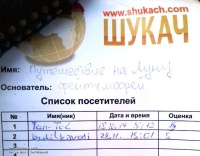 www.shukach.com
ШУКАЧ
Имя: Путешествие на Луну
Основатель: фейтмофей
Список посетителей
№ Имя(ник) Дата и время Оценка
1 5
2 28.11. 15:01 5
3